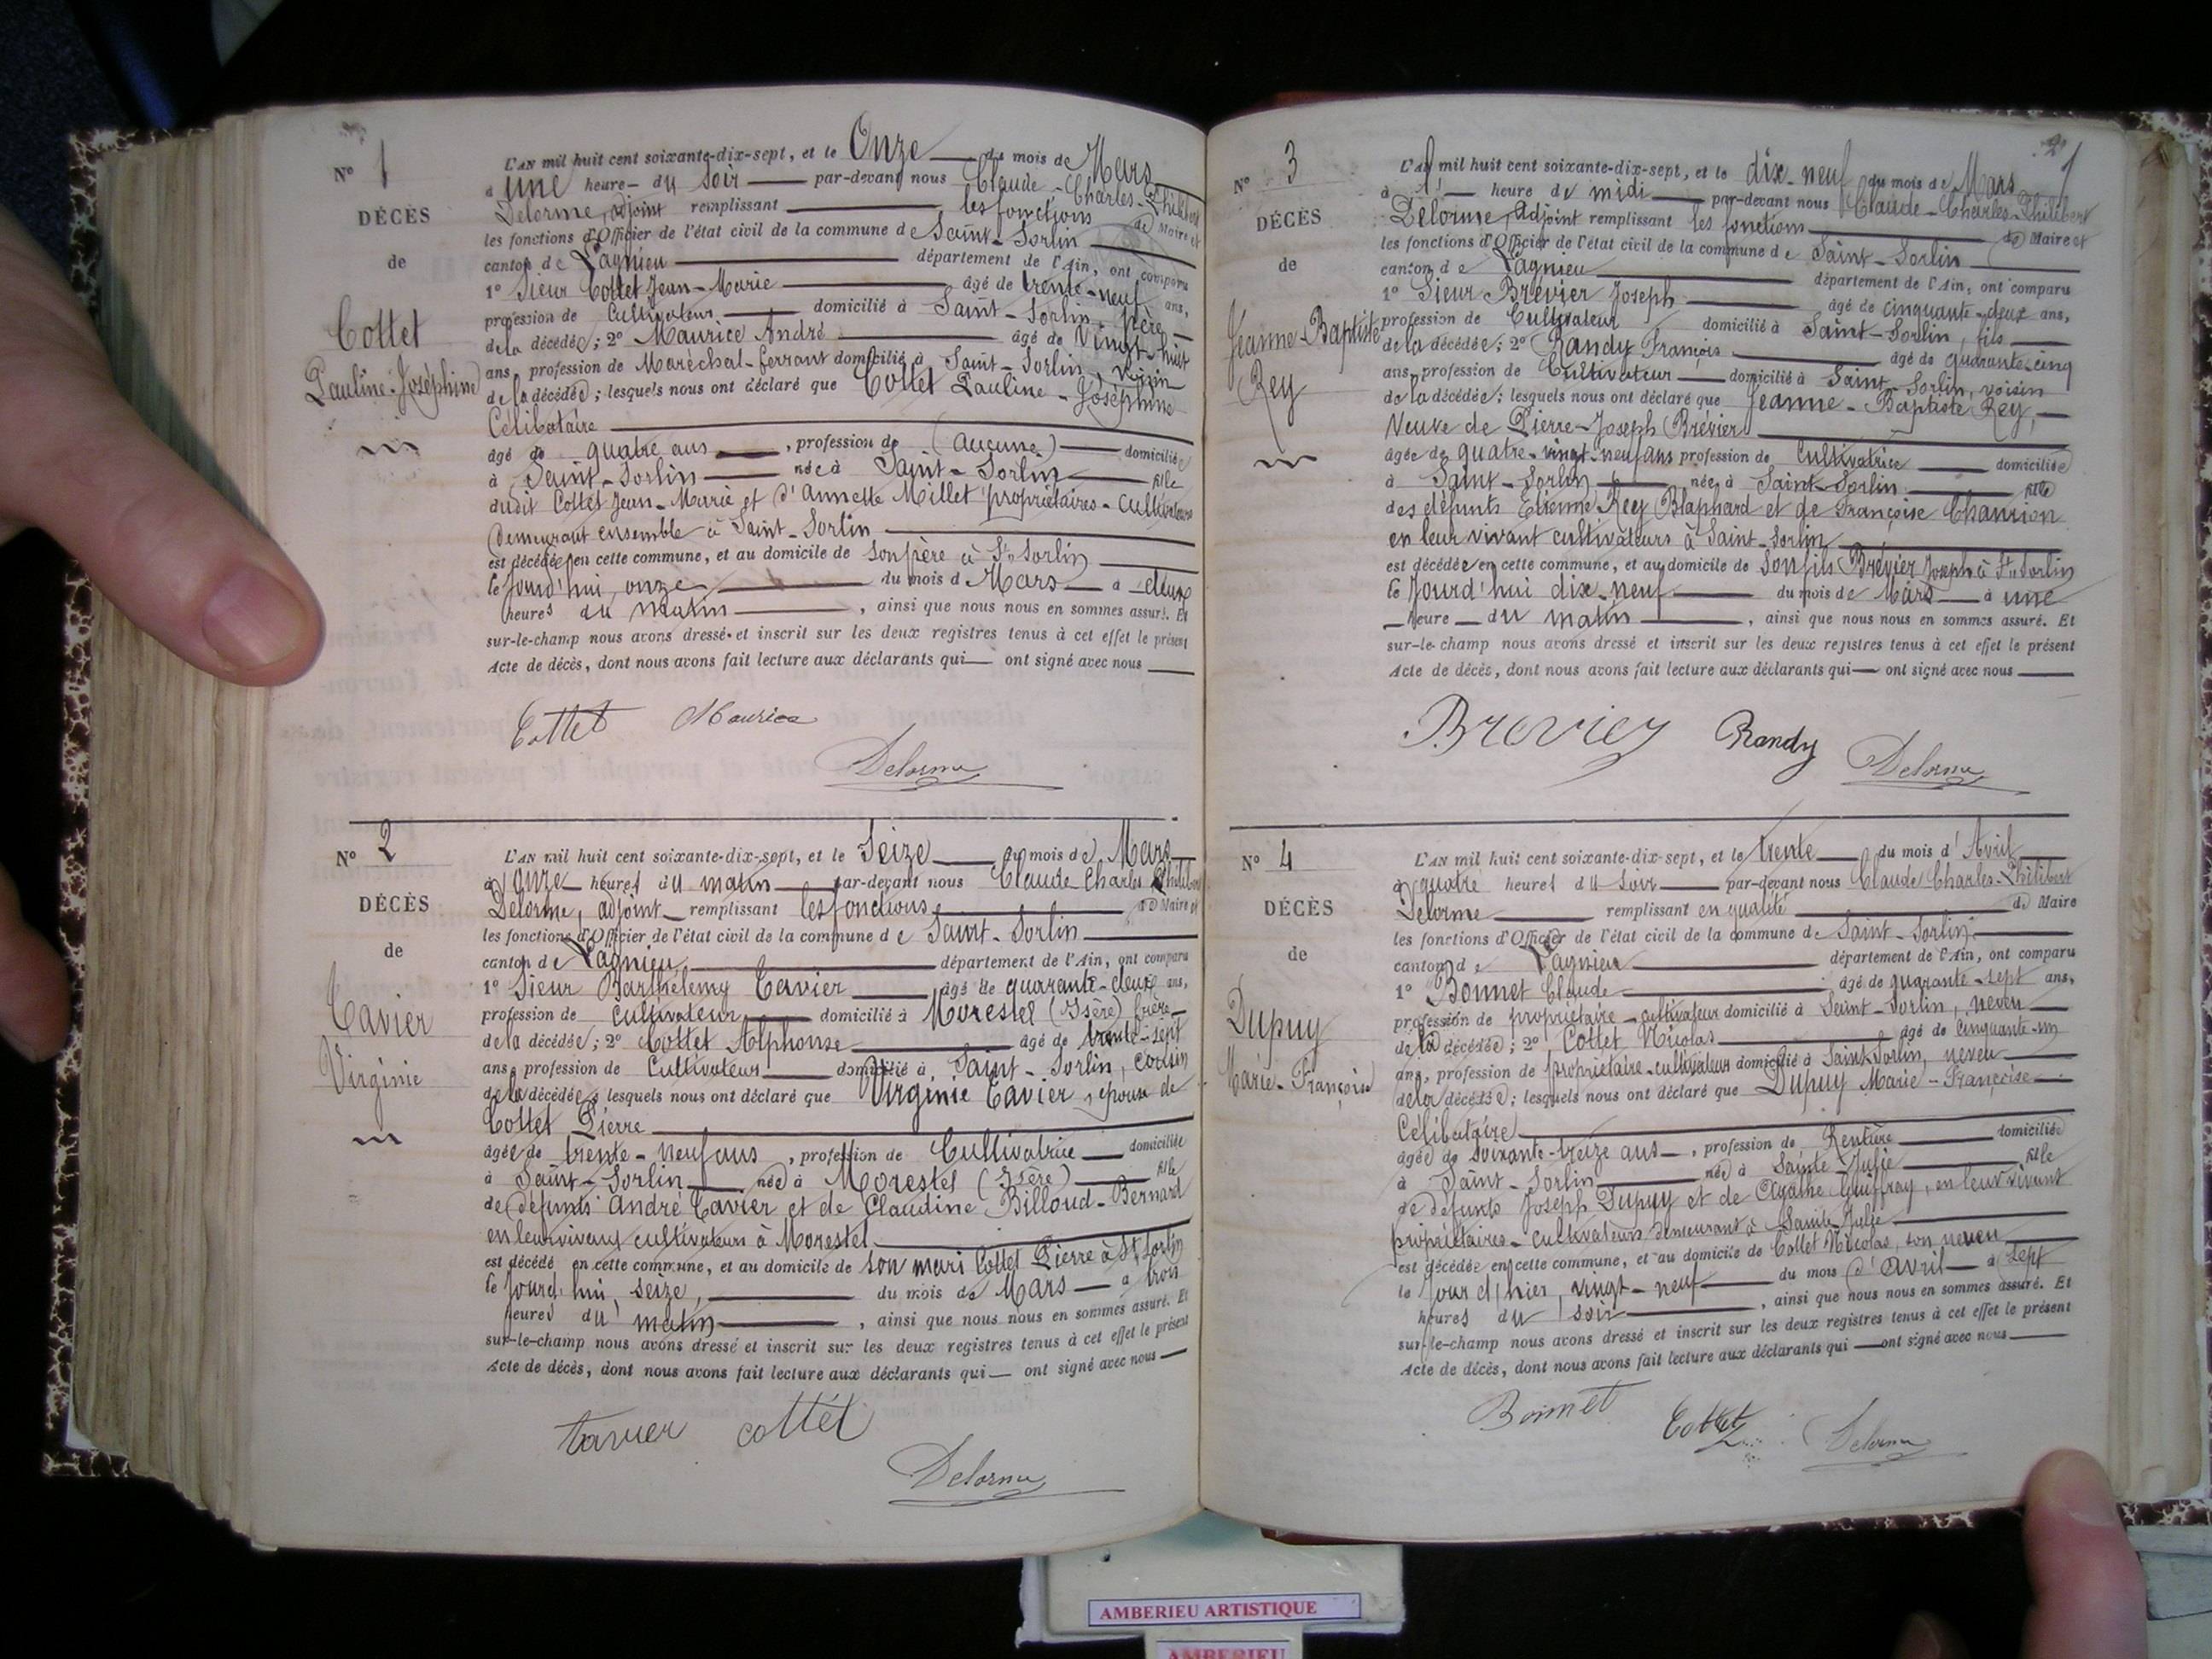 N° 1
DÉCÈS
de
Cottet
Pauline-Joséphine
L'AN mil huit cent soixante-dix-sept, et le Onze du mois de Mars
à une heure du soir par-devant nous Claude-Charles-Philibert
Delorme, adjoint remplissant les fonctions de Maire et
les fonctions d'Officier de l'état civil de la commune de Saint-Sorlin
canton de Lagnieu département de l'Ain, ont comparu
1° Sieur Cottet Jean-Marie âgé de trente-neuf ans,
profession de Cultivateur domicilié à Saint-Sorlin, père
de la décédée; 2° Maurice André âgé de Vingt-huit
ans, profession de Maréchal-ferrant domicilié à Saint-Sorlin, voisin
de la décédée; lesquels nous ont déclaré que Cottet Pauline-Joséphine
Célibataire
âgé de quatre ans, profession de (aucune) domiciliée
à Saint-Sorlin née à Saint-Sorlin fille
dudit Cottet Jean-Marie et d'Annette Millet propriétaires-cultivateurs
demeurant ensemble à Saint-Sorlin
est décédée en cette commune, et au domicile de son père à St Sorlin
le jourd'hui, onze du mois de Mars à deux
heures du matin, ainsi que nous nous en sommes assuré. Et
sur-le-champ nous avons dressé et inscrit sur les deux registres tenus à cet effet le présent
Acte de décès, dont nous avons fait lecture aux déclarants qui ont signé avec nous
Cottet Maurice
Delorme
N° 2
DÉCÈS
de
Tavier
Virginie
L'AN mil huit cent soixante-dix-sept, et le Seize du mois de Mars
à onze heures du matin par-devant nous Claude Charles Philibert
Delorme, adjoint remplissant les fonctions de Maire et
les fonctions d'Officier de l'état civil de la commune de Saint-Sorlin
canton de Lagnieu département de l'Ain, ont comparu
1° Sieur Barthélemy Tavier âgé de quarante-deux ans,
profession de cultivateur domicilié à Morestel (Isère) frère
de la décédée; 2° Cottet Alphonse âgé de trente-sept
ans, profession de Cultivateur domicilié à Saint-Sorlin, cousin
de la décédée; lesquels nous ont déclaré que Virginie Tavier, épouse de
Cottet Pierre
âgée de trente-neuf ans, profession de Cultivatrice domiciliée
à Saint-Sorlin née à Morestel (Isère) fille
de défunts André Tavier et de Claudine Billoud-Bernard
en leur vivant cultivateurs à Morestel
est décédé en cette commune, et au domicile de son mari Cottet Pierre à St Sorlin
le jourd'hui seize, du mois de Mars à trois
heures du matin, ainsi que nous nous en sommes assuré. Et
sur-le-champ nous avons dressé et inscrit sur les deux registres tenus à cet effet le présent
Acte de décès, dont nous avons fait lecture aux déclarants qui ont signé avec nous
tavier cottet
Delorme
2
N° 3
DÉCÈS
de
Jeanne-Baptiste
Rey
L'AN mil huit cent soixante-dix-sept, et le dix-neuf du mois de Mars
à 1 heure de midi par-devant nous Claude-Charles-Philibert
Delorme, Adjoint remplissant les fonctions de Maire et
les fonctions d'Officier de l'état civil de la commune de Saint-Sorlin
canton de Lagnieu département de l'Ain, ont comparu
1° Sieur Brevier Joseph âgé de cinquante-deux ans,
profession de Cultivateur domicilié à Saint-Sorlin, fils
de la décédée; 2° Randy François âgé de quarante-cinq
ans, profession de Cultivateur domicilié à Saint-Sorlin, voisin
de la décédée; lesquels nous ont déclaré que Jeanne-Baptiste Rey,
Veuve de Pierre-Joseph Brévier
âgée de quatre-vingt-neuf ans profession de Cultivatrice domiciliée
à Saint-Sorlin née à Saint-Sorlin fille
des défunts Etienne Rey Blaphard et de Françoise Chanrion
en leur vivant cultivateurs à Saint-Sorlin
est décédée en cette commune, et au domicile de son fils Brévier Joseph à St Sorlin
le jourd'hui dix-neuf du mois de Mars à une
heure du matin, ainsi que nous nous en sommes assuré. Et
sur-le-champ nous avons dressé et inscrit sur les deux registres tenus à cet effet le présent
Acte de décès, dont nous avons fait lecture aux déclarants qui ont signé avec nous
Brevier Randy
Delorme
N° 4
DÉCÈS
de
Dupuy
Marie-Françoise
L'AN mil huit cent soixante-dix-sept, et le trente du mois d'Avril
à quatre heures du soir par-devant nous Claude Charles-Philibert
Delorme remplissant en qualité de Maire
les fonctions d'Officier de l'état civil de la commune de Saint-Sorlin
canton de Lagnieu département de l'Ain, ont comparu
1° Bonnet Claude âgé de quarante-sept ans,
profession de propriétaire-cultivateur domicilié à Saint-Sorlin, neveu
de la décédée; 2° Cottet Nicolas âgé de cinquante-un
ans, profession de propriétaire-cultivateur domicilié à Saint-Sorlin, neveu
de la décédée; lesquels nous ont déclaré que Dupuy Marie-Françoise
Célibataire
âgée de soixante-treize ans, profession de Rentière domiciliée
à Saint-Sorlin née à Sainte Julie fille
de défunts Joseph Dupuy et de Agathe Guiffray, en leur vivant
propriétaires-cultivateurs demeurant à Sainte-Julie
est décédée en cette commune, et au domicile de Cottet Nicolas, son neveu
le jour d'hier, vingt-neuf du mois d'avril à Sept
heures du soir, ainsi que nous nous en sommes assuré. Et
sur-le-champ nous avons dressé et inscrit sur les deux registres tenus à cet effet le présent
Acte de décès, dont nous avons fait lecture aux déclarants qui ont signé avec nous
Bonnet Cottet Delorme
AMBERIEU ARTISTIQUE
AMBERIEU